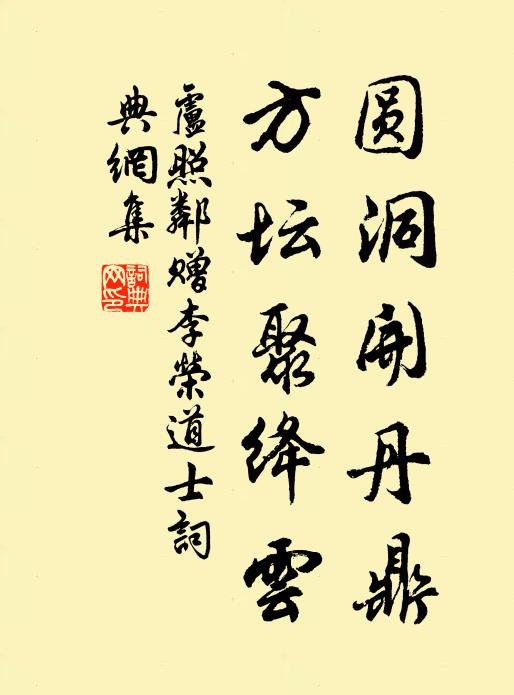 圆洞開丹鼎
方坛聚绛雲
盧照鄰赠李榮道士詞
典網集
詞典网印